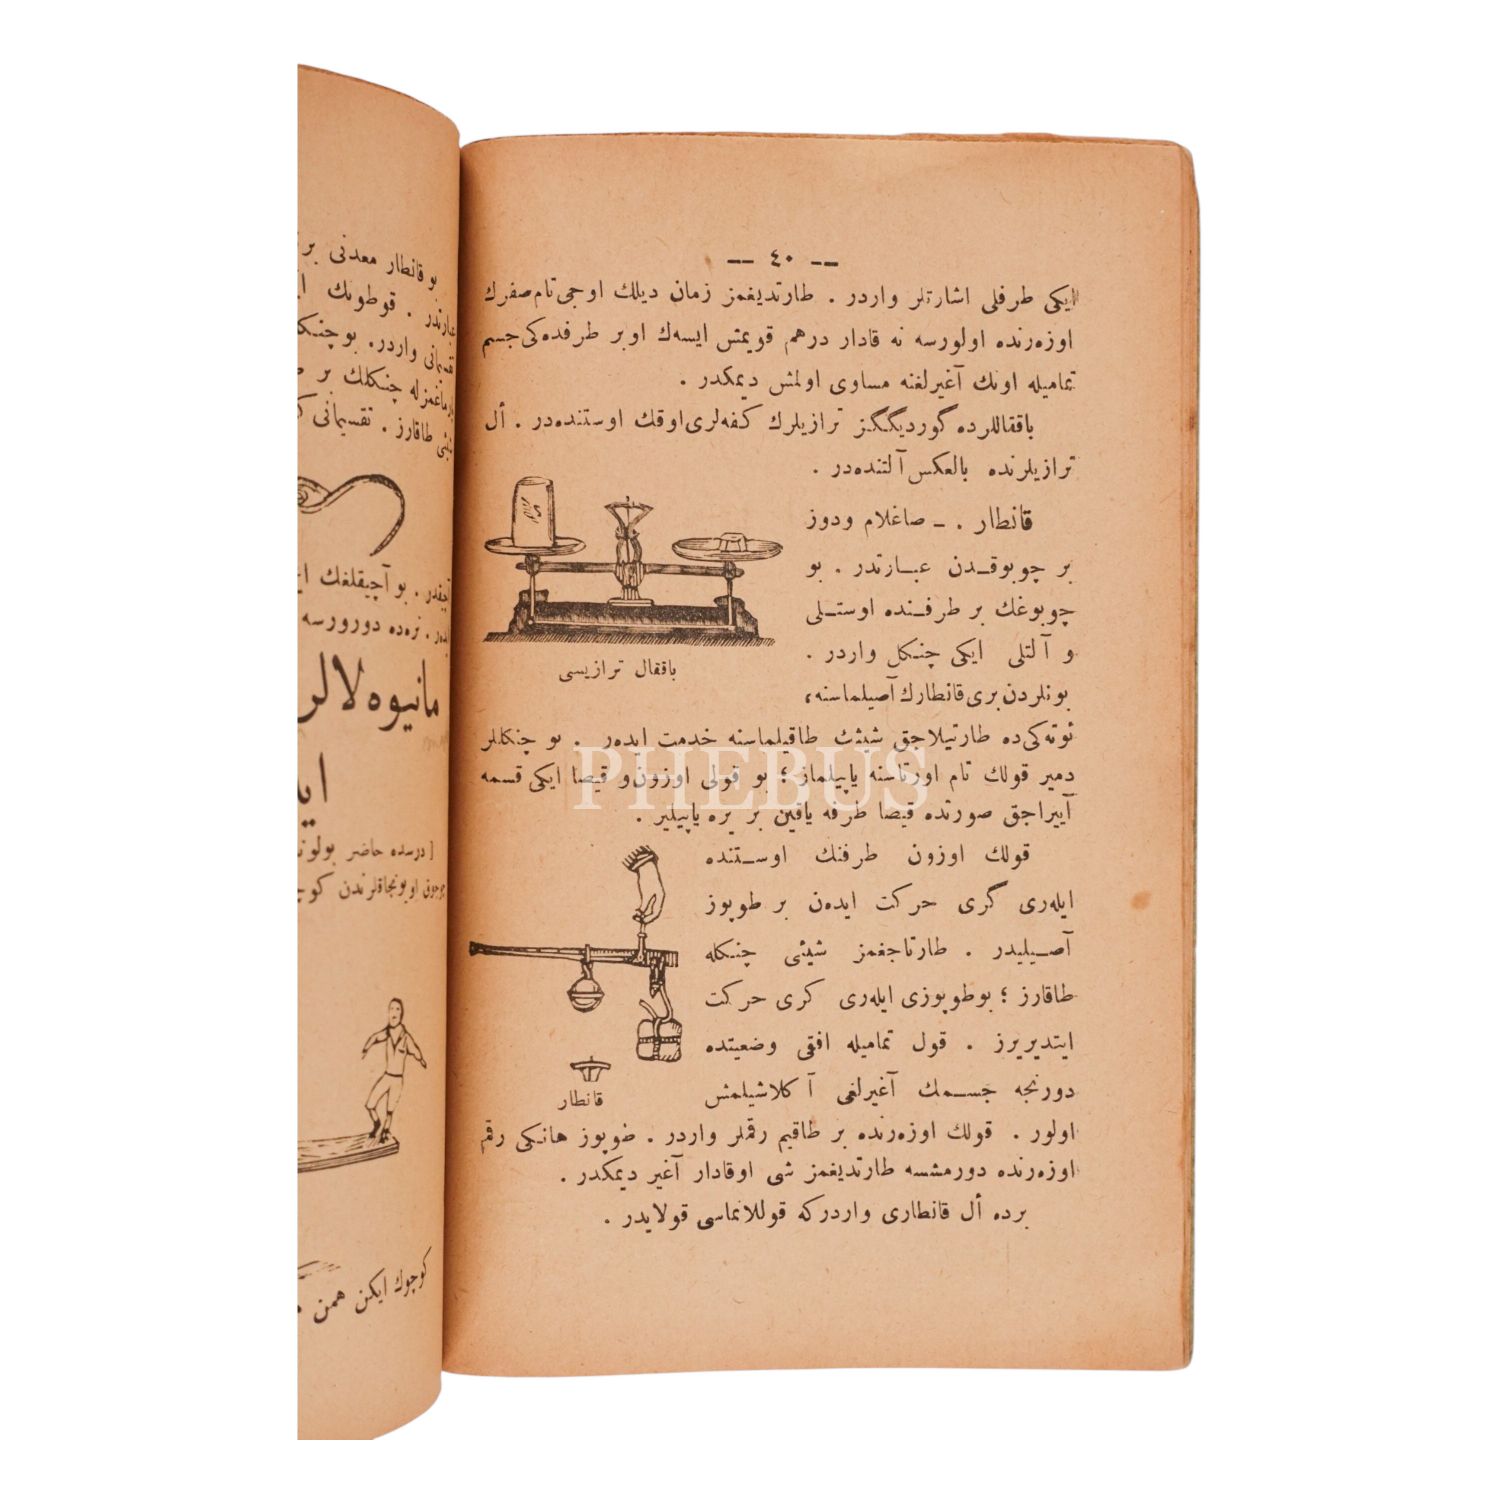 — ٤٠ —
ايكی طرفلی اشارتلر واردر . طارتديغمز زمان ديلك اوجی تام صفرك
اوزه‌رنده اولورسه نه قادار درهم قويمش ايسه‌ك اوبر طرفده‌كی جسم
تماميله اونك آغيرلغنه مساوی اولمش ديمكدر .
باققاللرده گورديگگز ترازيلرك كفه‌لری اوقك اوستنده‌در . أل
ترازيلرنده بالعكس آلتنده‌در .
قانطار . – صاغلام ودوز
بر چوبوقدن عبارتدر . بو
چوبوغك بر طرفنده اوستلی
و آلتلی ايكی چنكل واردر .
بونلردن بری قانطارك آصيلماسنه،
ئوته‌كی ده طارتيلاجق شيئك طاقيلماسنه خدمت ايده‌ر . بو چنكللر
دمير قولك تام اورتاسنه ياپيلماز ؛ بو قولی اوزون و قيصا ايكی قسمه
آييراجق صورتده قيصا طرفه ياقين بر يره ياپيلير .
باققال ترازيسی
قولك اوزون طرفنك اوستنده
ايله‌ری گری حركت ايده‌ن بر طوپوز
آصيليدر . طارتاجغمز شيئی چنكله
طاقارز ؛ بو طوپوزی ايله‌ری كری حركت
ايتديريرز . قول تماميله افقی وضعيتده
دورنجه جسمك آغيرلغی آكلاشيلمش
اولور . قولك اوزه‌رنده بر طاقيم رقملر واردر . طوپوز هانكی رقم
اوزه‌رنده دورمشسه طارتديغمز شی اوقادار آغير ديمكدر .
برده أل قانطاری واردركه قوللانماسی قولايدر .
قانطار
PHEBUS
بو قانطار معدنی بر
عبارتدر . قوطونك
تقسيماتی واردر. بو چنكـ
پارماغمزله چنكلك بر
شيئی طاقارز . تقسيماتی
آچيقدر . بو آچيقلغك
ايده‌ر . نره‌ده دورورسه
مانيوه‌لالر
[ درسده حاضر بولونـ
چوجوق اويونجاقلرندن كوچـ
كوچوك ايكن همن